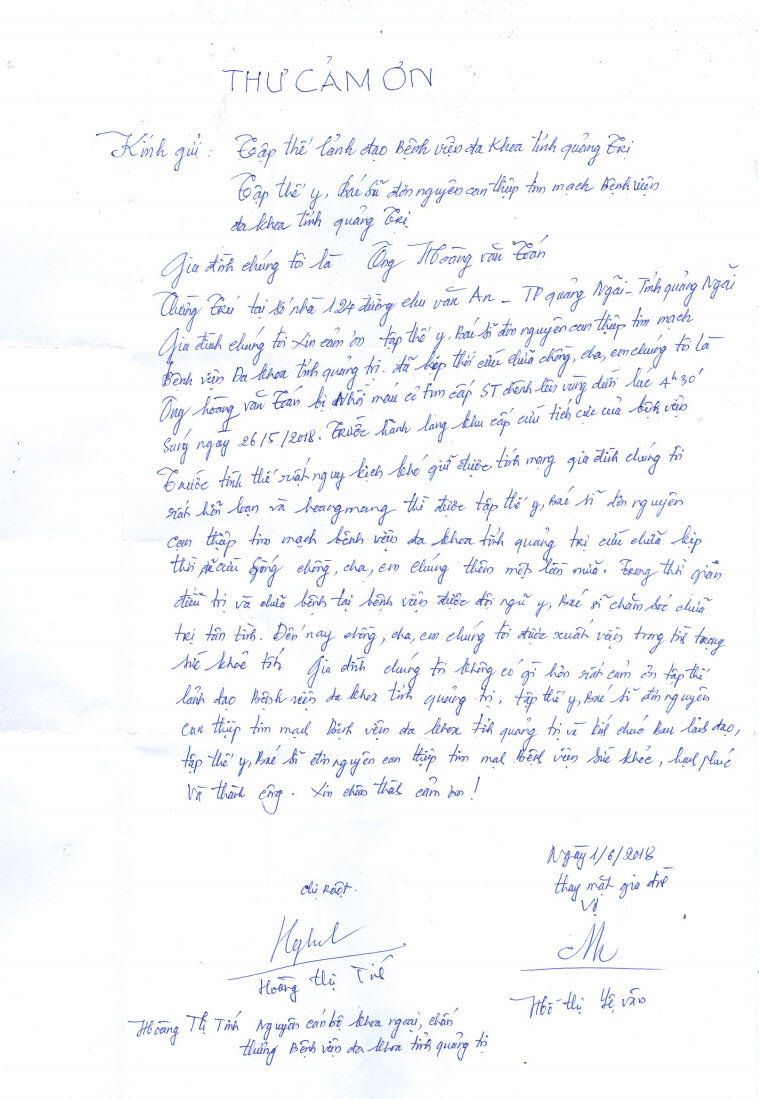 THƯ CẢM ƠN
Kính gửi : Tập thể lảnh đạo Bệnh viện đa khoa tỉnh quảng Trị
Tập thể y, Bác sĩ đơn nguyên can thiệp tim mạch Bệnh viện
đa khoa tỉnh quảng Trị
Gia đình chúng tôi là Ông Hoàng văn Toán
Thường Trú tại số nhà 124 đường chu văn An - TP quảng Ngãi - Tỉnh quảng Ngãi
Gia đình chúng tôi xin cảm ơn tập thể y, Bác sĩ đơn nguyên can thiệp tim mạch
Bệnh viện Đa khoa tỉnh quảng trị. đã kịp thời cứu chữa chồng, cha, em chúng tôi là
Ông hoàng văn Toán bị Nhồi máu cơ tim cấp ST chênh lên vùng dưới lúc 4h30'
sáng ngày 26/5/2018. Trước hành lang khu cấp cứu tích cực của bệnh viện
Trước tình thế rất nguy kịch khó giữ được tính mạng gia đình chúng tôi
rất hỗn loạn và hoang mang thì được tập thể y, Bác sĩ đơn nguyên
can thiệp tim mạch bệnh viện đa khoa tỉnh quảng trị cứu chữa kịp
thời đã cứu sống chồng, cha, em chúng thêm một lần nữa. Trong thời gian
điều trị và chữa bệnh tại bệnh viện được đội ngũ y, Bác sĩ chăm sóc chữa
trị tân tình. Đến nay chồng, cha, em chúng tôi được xuất viện trong tình trạng
sức khoẻ tốt Gia đình chúng tôi không có gì hơn rất cảm ơn tập thể
lảnh đạo Bệnh viện đa khoa tỉnh quảng trị, tập thể y, Bác sĩ đơn nguyên
can thiệp tim mạch Bệnh viện đa khoa tỉnh quảng trị và kính chúc Ban lảnh đạo,
tập thể y, Bác sĩ đơn nguyên can thiệp tim mạch Bệnh viện sức khỏe, hạnh phúc
và thành công. Xin chân thành cảm ơn !
Ngày 1/6/2018
thay mặt gia đình
Vợ
chị Ruột.
Hoàng thị Tính
Hồ thị Vân
Hoàng Thị Tính Nguyên cán bộ khoa ngoại, chấn
thương Bệnh viện đa khoa tỉnh quảng trị